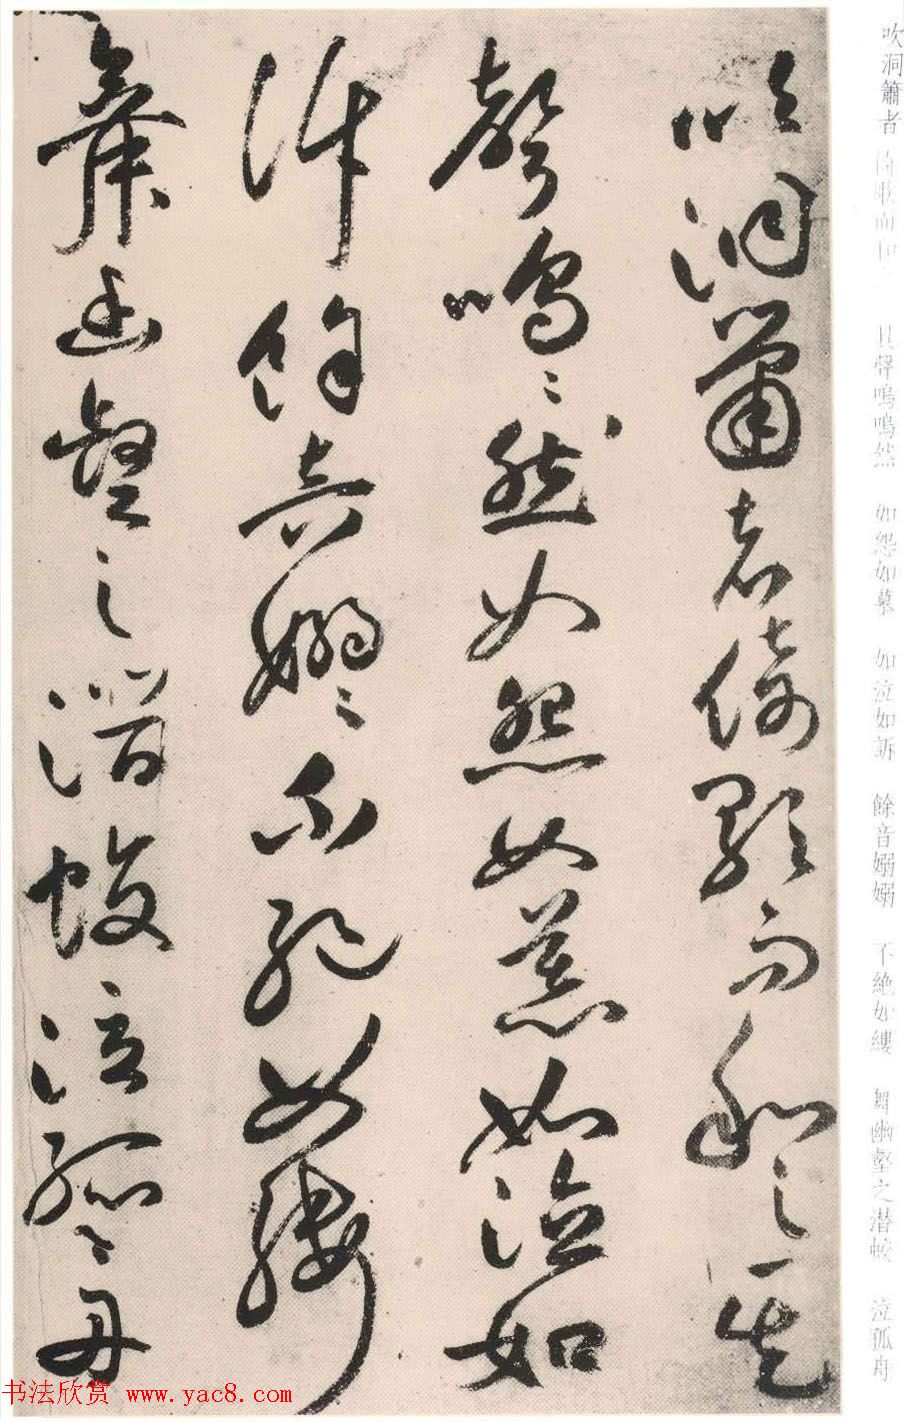 吹洞簫者倚歌而和之其
聲嗚〻然如怨如慕如泣如
訴餘音嫋〻不絕如縷
舞幽壑之潛蛟泣孤〻舟
吹洞簫者 倚歌而和之 其聲嗚嗚然 如怨如慕 如泣如訴 餘音嫋嫋 不絕如縷 舞幽壑之潜蛟 泣孤舟
书法欣赏 www.yac8.com